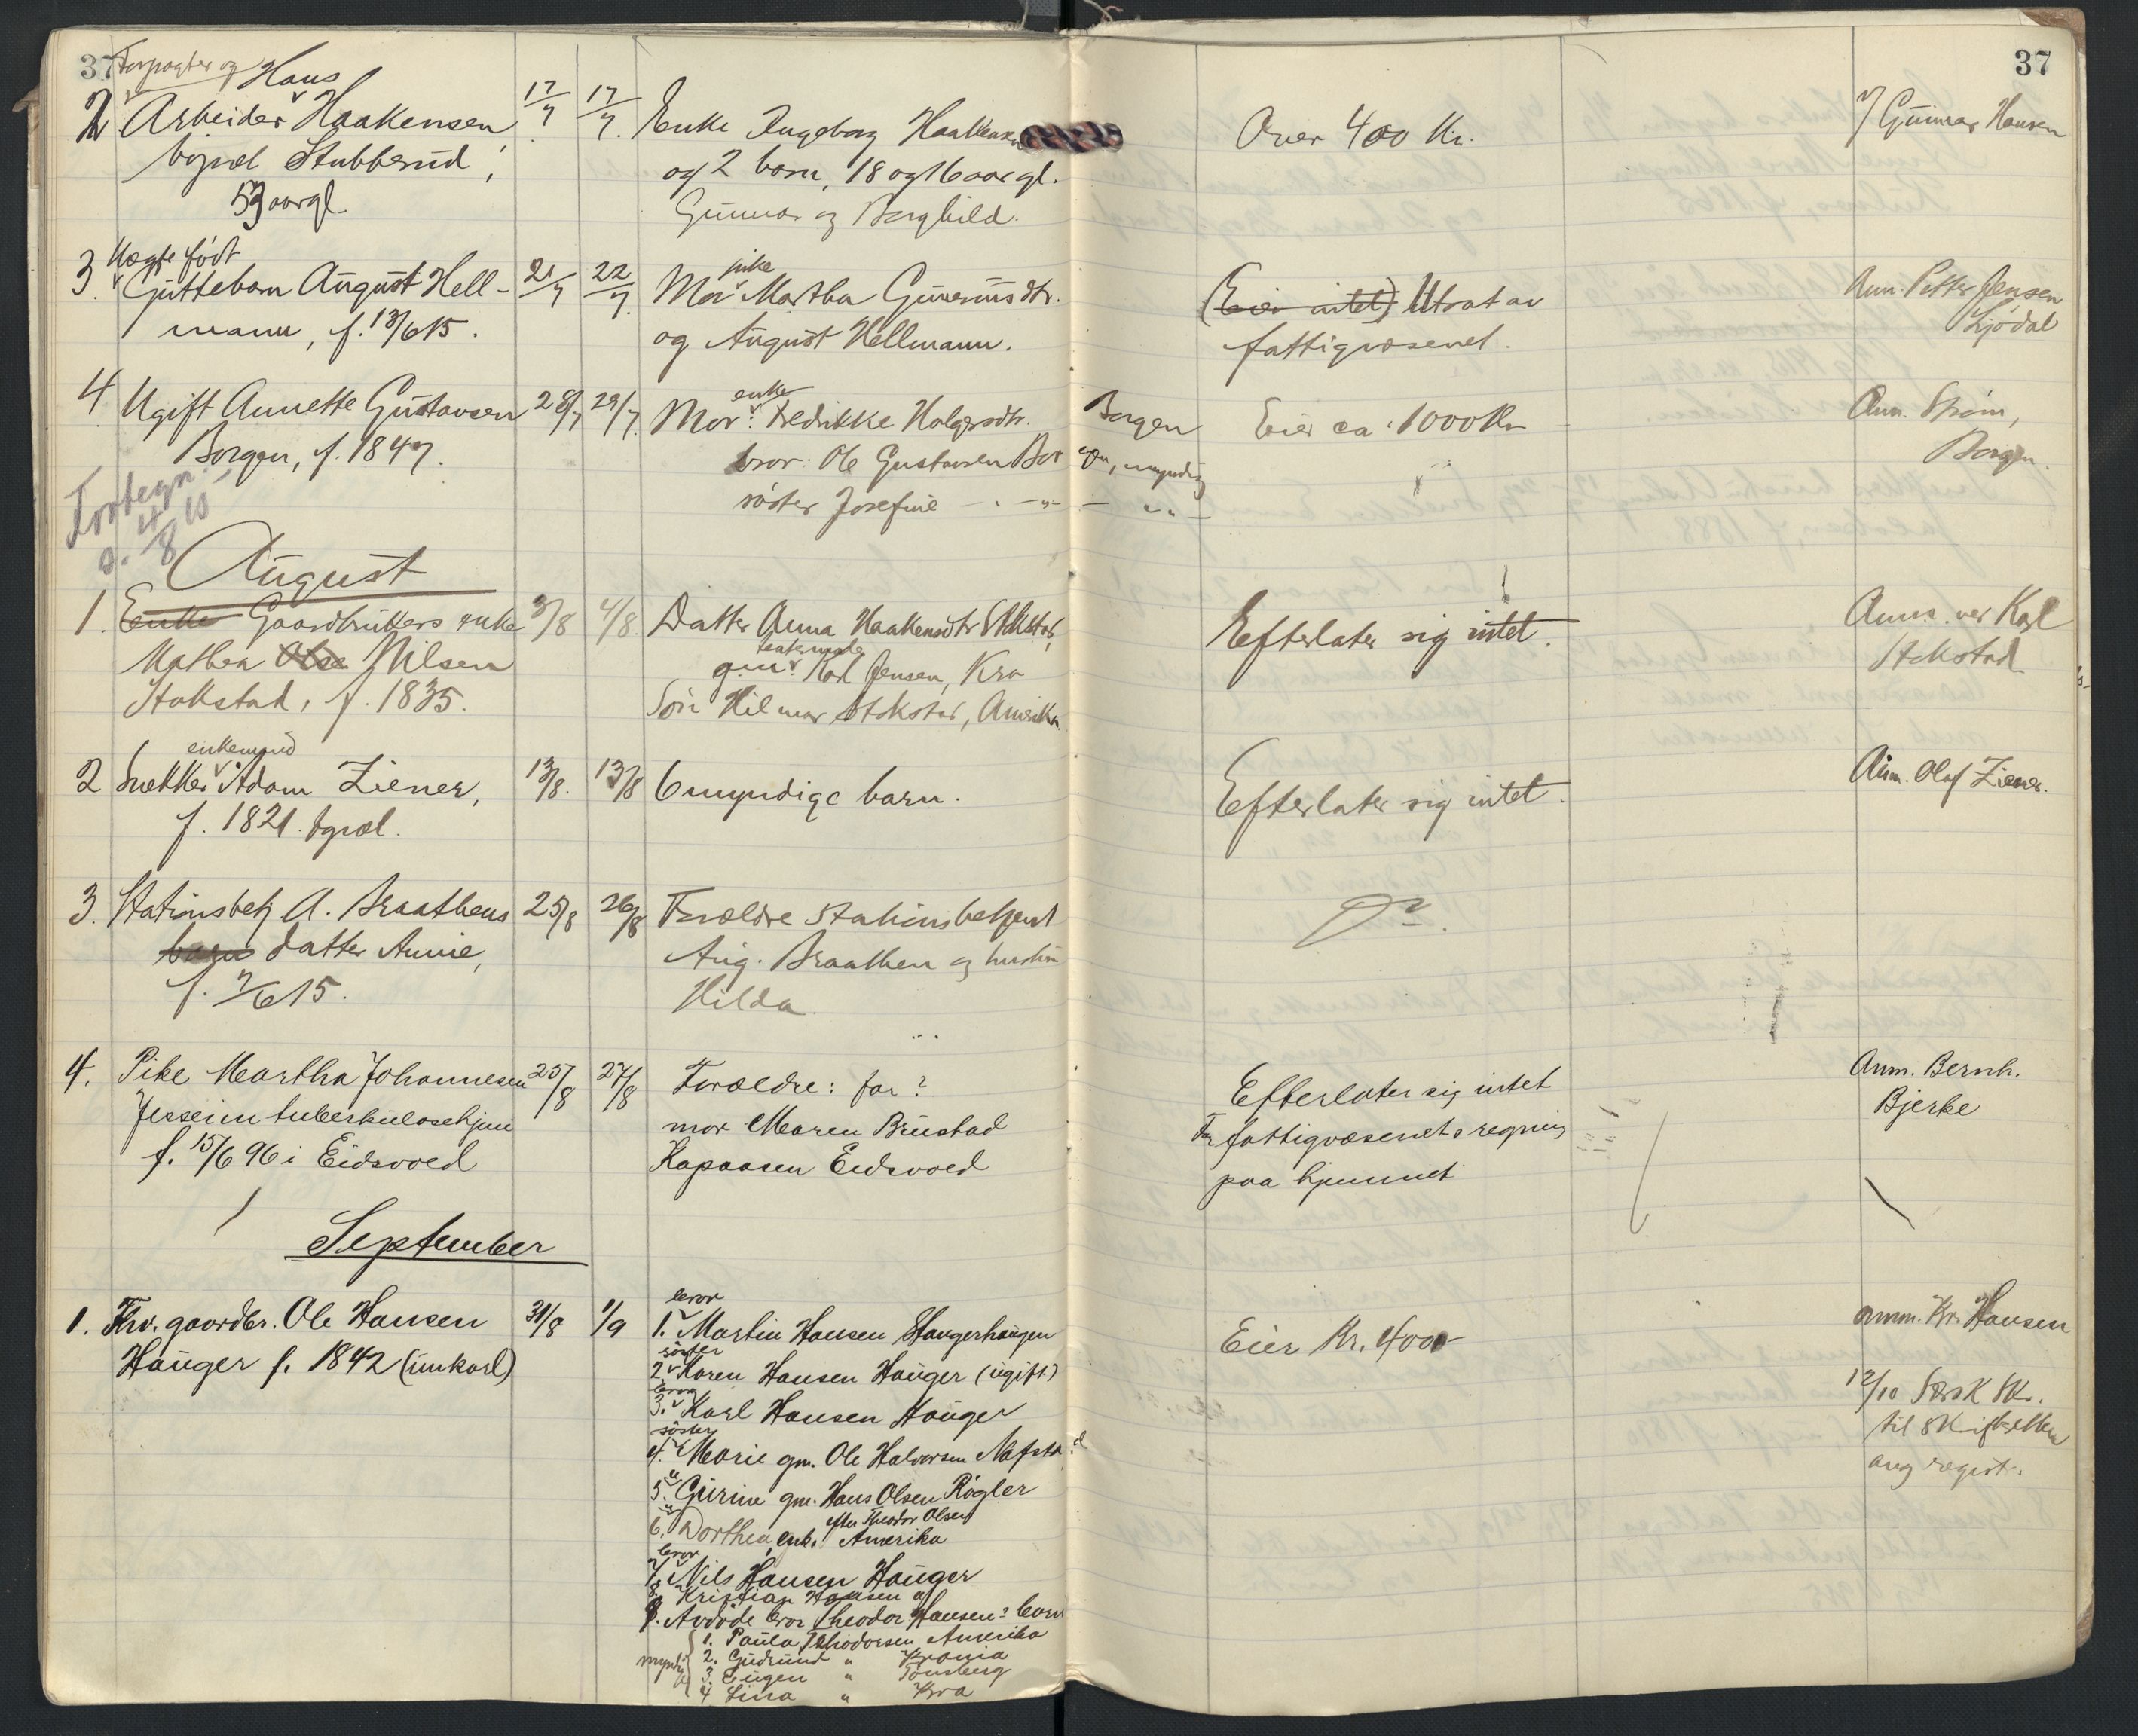 37
37
Forpagter og Hans
2 Arbeider Haakensen 17/7 17/7. Enke Ingeborg Haakensen Over 400 Kr. v/ Gunnar Hansen
bopæl Stubberud, og 2 barn, 18 og 16 aar gl.
53 aargl. Gunnar og Borghild.
3. Uegte født
Guttebarn August Hell- 21/7 22/7. Mor pike Martha Guneriusdtr. (Eier intet) Utsat av Anm. Petter Jensen
mann, f. 13/6 15. og August Hellmann. fattigvæsenet. Ljødal
4 Ugift Annette Gustavsen 28/7 29/7. Mor: enke Fredrikke Holgersdtr. Borgen Eier ca. 1000 Kr Anm. Strøm,
Borgen, f. 1847. bror: Ole Gustavsen Borgen, myndig Borgen.
søster Josefine — „ — „ —
Fortegn.
o. 4/8 15
August
1. Enke Gaardbrukers enke 3/8 4/8 Datter Anna Haakensdtr Stokstad, Efterlater sig intet. Anm. ved Karl
Mathea Olse Nilsen g.m. Karl Jensen, Kra Stokstad
Stokstad, f. 1835. Søn Hilmar Stokstad, Amerika.
enkemand
2 Snekker Adam Ziener, 13/8. 13/8 6 myndige barn. Efterlater sig intet. Anm. Olaf Ziener.
f. 1821.
3. Stationsbetj A. Braathens 25/8 26/8 Forældre Stationsbetjent
barn datter Annie, Aug. Braathen og hustru
f. 7/6 15. Hilda.
4. Pike Martha Johannesen 25/8 27/8 Forældre: far? Efterlater sig intet Anm. Bernh.
Jessheim tuberkulosehjem mor Maren Brustad For fattigvæsenets regning Bjerke
f. 15/6 96 i Eidsvold Kapaasen Eidsvold paa hjemmet
September
1. Fhv. gaardbr. Ole Hansen 31/8 1/9 1. bror Martin Hansen Haugerhaugen Eier Kr. 4000 anm. Kr. Hansen
Hauger f. 1842 (unkarl) 2. søster Karen Hansen Hauger (ugift)
3. bror Karl Hansen Hauger 12/10
4. søster Marie gm. Ole Halvorsen Nafstad til
5. „ Gurine gm. Hans Olsen Røgler ang regist.
6. „ Dorthea, enke efter Theodor Olsen Amerika
7. bror Nils Hansen Hauger
8. „ Kristian Hansen
9. Avdøde bror Theodor Hansens barn
myndig 1. Paula Theodorsen Amerika
2. Gudrund „ Krania
3. Eugen „ Tønsberg
4 Lina „ Kra